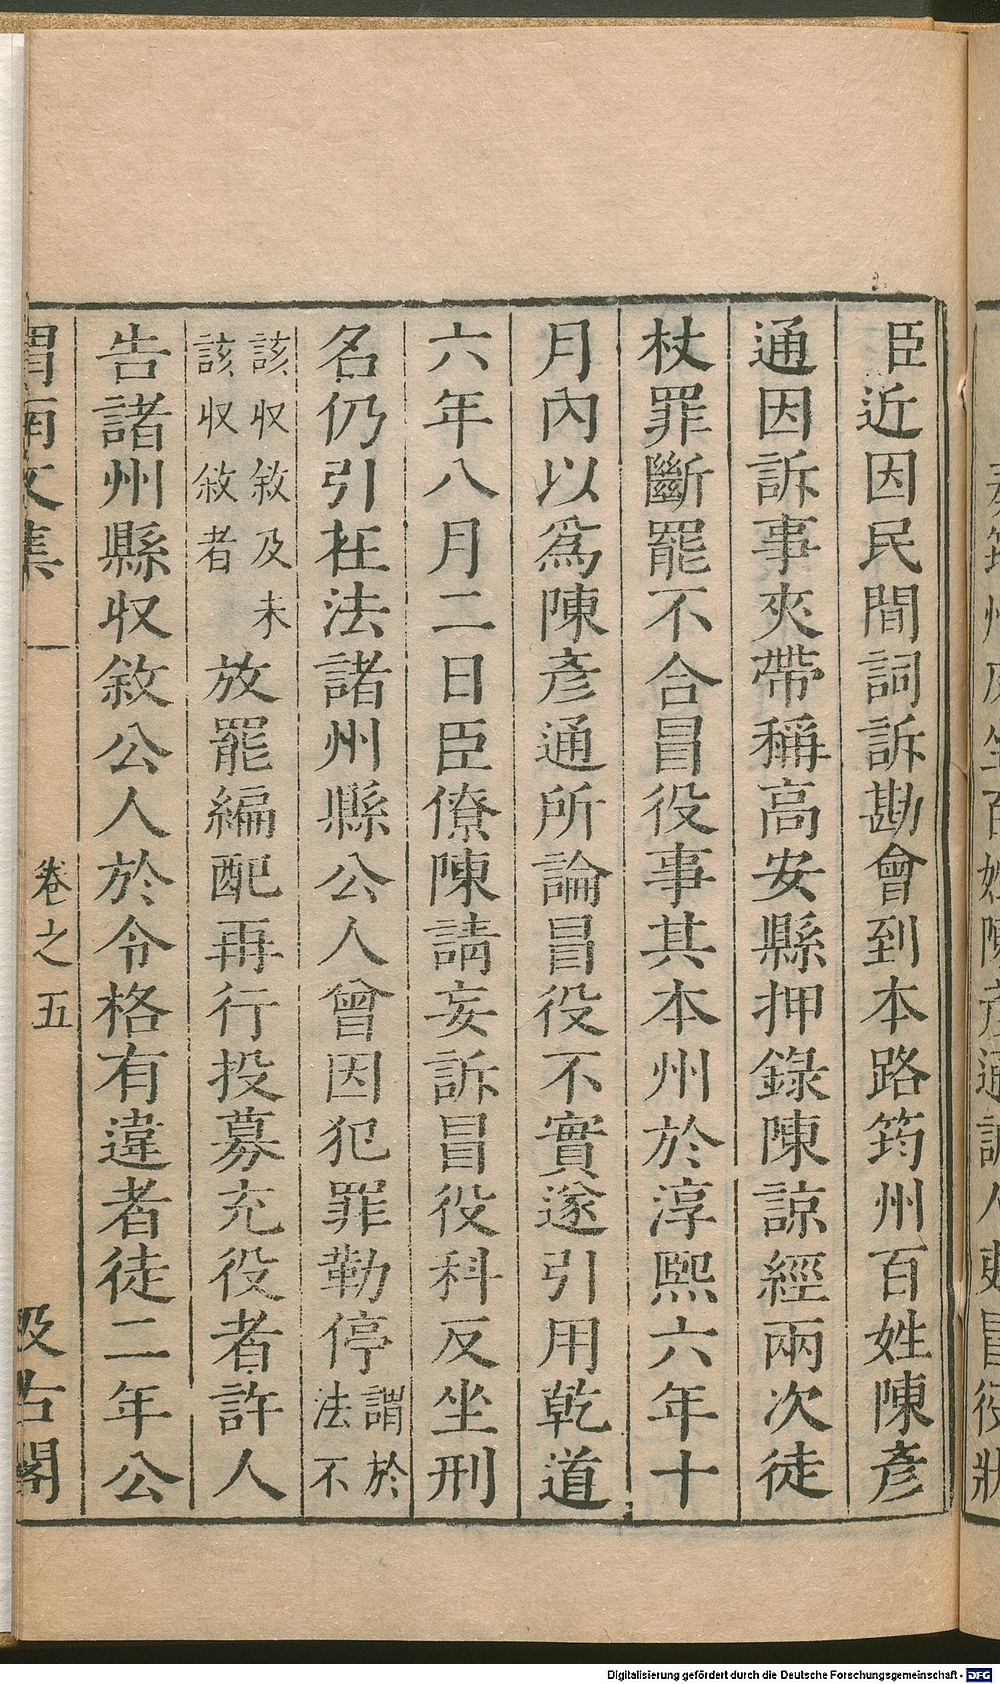 臣近因民間詞訴勘會到本路筠州百姓陳彥
通因訴事夾帶稱高安縣押錄陳諒經兩次徒
杖罪斷罷不合冒役事其本州於淳熙六年十
月內以爲陳彥通所論冒役不實遂引用乾道
六年八月二日臣僚陳請妄訴冒役科反坐刑
名仍引在法諸州縣公人曾因犯罪勒停謂於法不
該收敘及未該收敘者放罷編配再行投募充役者許人
告諸州縣收敘公人於令格有違者徒二年公
渭南文集 一 卷之五 汲古閣
Digitalisierung gefördert durch die Deutsche Forschungsgemeinschaft - DFG